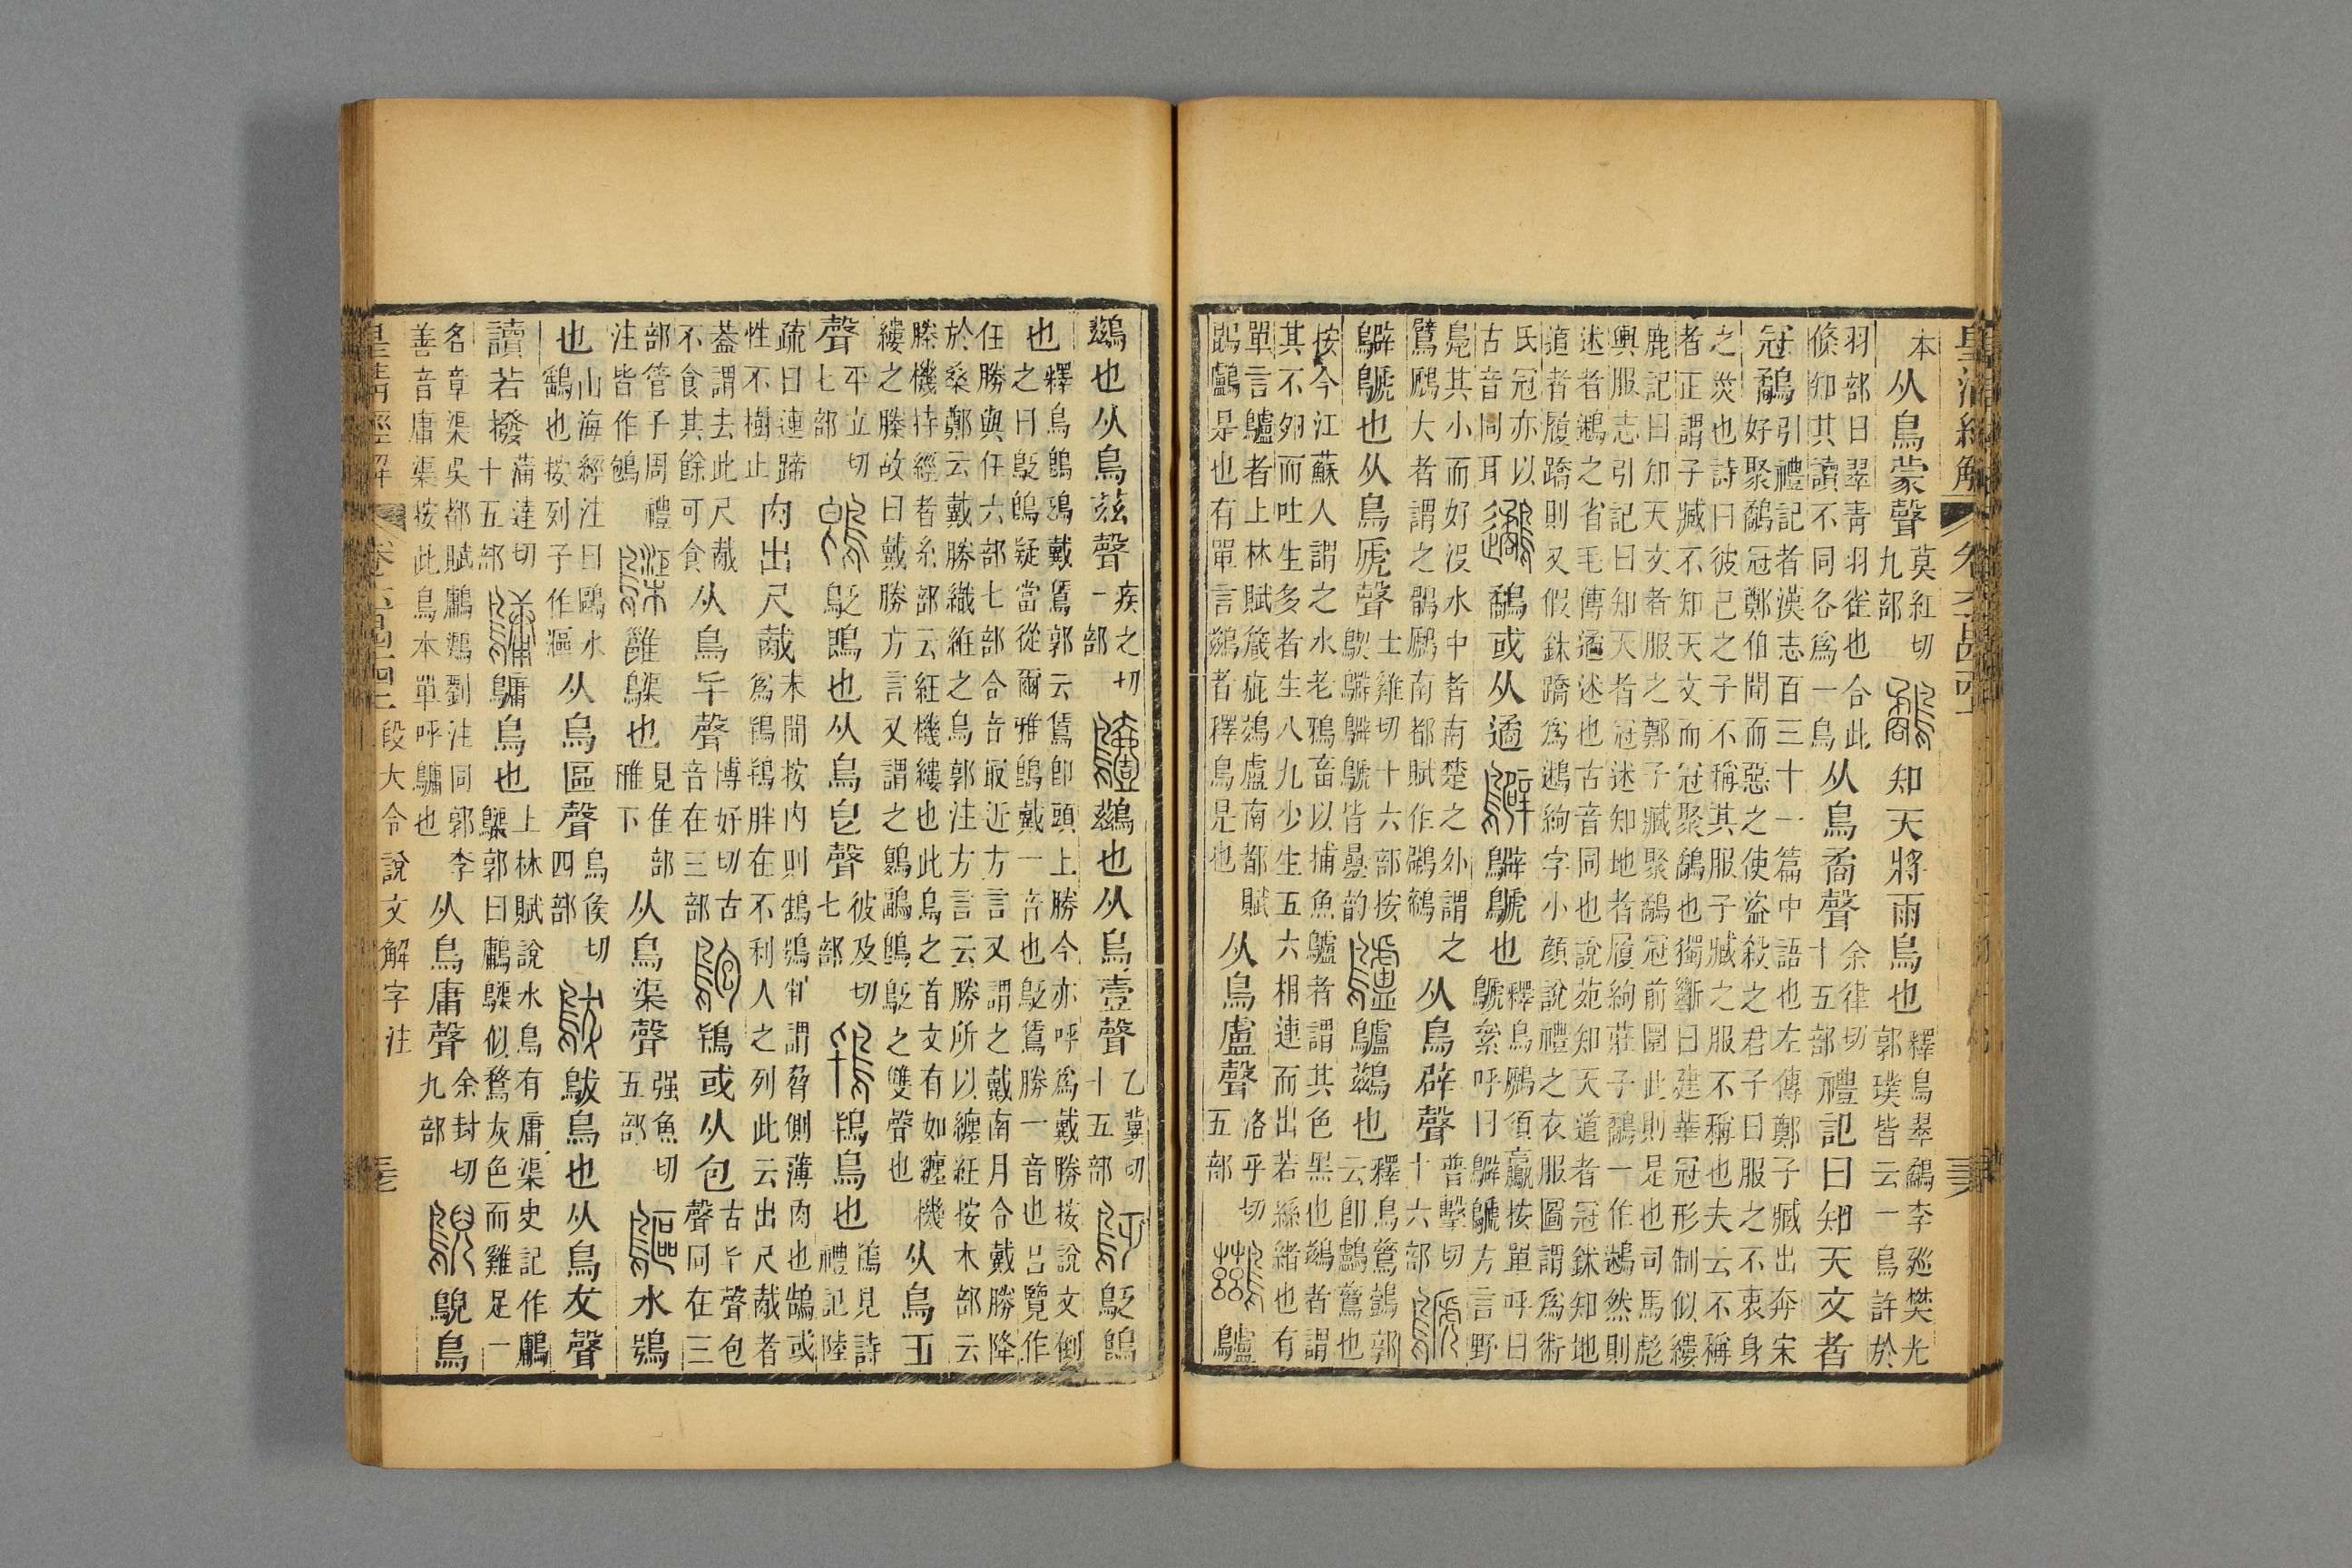 皇清經解 卷六百四十四
本从鳥蒙聲
莫紅切
九部
知天將雨鳥也
釋鳥翠鷸李巡樊光
郭璞皆云一鳥許於
羽部曰翠青羽雀也合此
條卽其讀不同各爲一鳥
从鳥矞聲
余律切
十五部
禮記曰知天文者
冠鷸
引禮記者漢志百三十一篇中語也左傳鄭子臧出奔宋
好聚鷸冠鄭伯聞而惡之使盜殺之君子曰服之不衷身
之烖也詩曰彼己之子不稱其服子臧之服不稱也夫云不稱
者正謂子臧不知天文而冠聚鷸也獨斷曰建華冠形制似縷
鹿記曰知天文者服之鄭子臧聚鷸冠前圜此則是也司馬彪
輿服志引記曰知天者冠述知地者履絇莊子鷸一作鷸然則
述者鷸之省毛傳遹述也古音同也說苑知天道者冠鉥知地
道者履蹻則又假鉥蹻爲鷸絇字小顔說禮之衣服圖謂爲術
氏冠亦以
古音同耳
鷸或从遹
鷿鷉也
釋鳥鷉須鸁按單呼曰
鷉絫呼曰鷿鷉方言野
鳧其小而好没水中者南楚之外謂之
鷿鷉大者謂之鶻鷉南都賦作
从鳥辟聲
普擊切
十六部
鷿鷉也从鳥虒聲
土雞切十六部按
鷿鷉皆曡韵
鸕鷀也
釋鳥鶿鷧郭
云卽鸕鷀也
按今江蘇人謂之水老鴉畜以捕魚鸕者謂其色黑也鷀者謂
其不夘而吐生多者生八九少生五六相連而出若絲緒也有
單言鸕者上林賦箴疵鵁盧南都賦
鸕是也有單言鷀者釋鳥是也
从鳥盧聲
洛乎切
五部
鸕
鷀也从鳥兹聲
疾之切
一部
鷀也从鳥壹聲
乙冀切
十五部
鴔鵖
也
釋鳥鵖鴔戴鵀郭云鵀卽頭上勝今亦呼爲戴勝按說文倒
之曰鴔鵖疑當從爾雅鵖戴一音也鴔鵀勝一音也呂覽作
任勝與任六部七部合音最近方言又謂之戴南月令戴勝降
於桑鄭云戴勝織紝之鳥郭注方言云勝所以纏紝按木部云
榺機持經者糸部云紝機縷也此鳥之首文有如纏機
縷之榺故曰戴勝方言又謂之鶝鵖鴔之雙聲也
从鳥乏
聲
平立切
七部
鴔鵖也从鳥皀聲
彼及切
七部
鴇鳥也
鴇見詩
禮記陸
疏曰連蹄
性不樹止
肉出尺胾
未聞按内則鵠鴞胖謂脅側薄肉也鵠或
爲鴇鴇胖在不利人之列此云出尺胾者
葢謂去此尺胾
不食其餘可食
从鳥𠦒聲
博好切古
音在三部
鴇或从包
古𠦒聲包
聲同在三
部管子周禮
注皆作
雝䳿也
見隹部
雃下
从鳥渠聲
强魚切
五部
水鴞
也
山海經注曰鷗水
鴞也按列子作漚
从鳥區聲
烏侯切
四部
䳁鳥也从鳥犮聲
讀若撥
蒲達切
十五部
鷛鳥也
上林賦說水鳥有庸渠史記作鷛
䳿郭曰鷛䳿似鶩灰色而雞足一
名章渠吳都賦鷛劉注同郭李
善音庸渠按此鳥本單呼鷛也
从鳥庸聲
余封切
九部
鶂鳥
皇清經解 卷六百四十四 段大令說文解字注